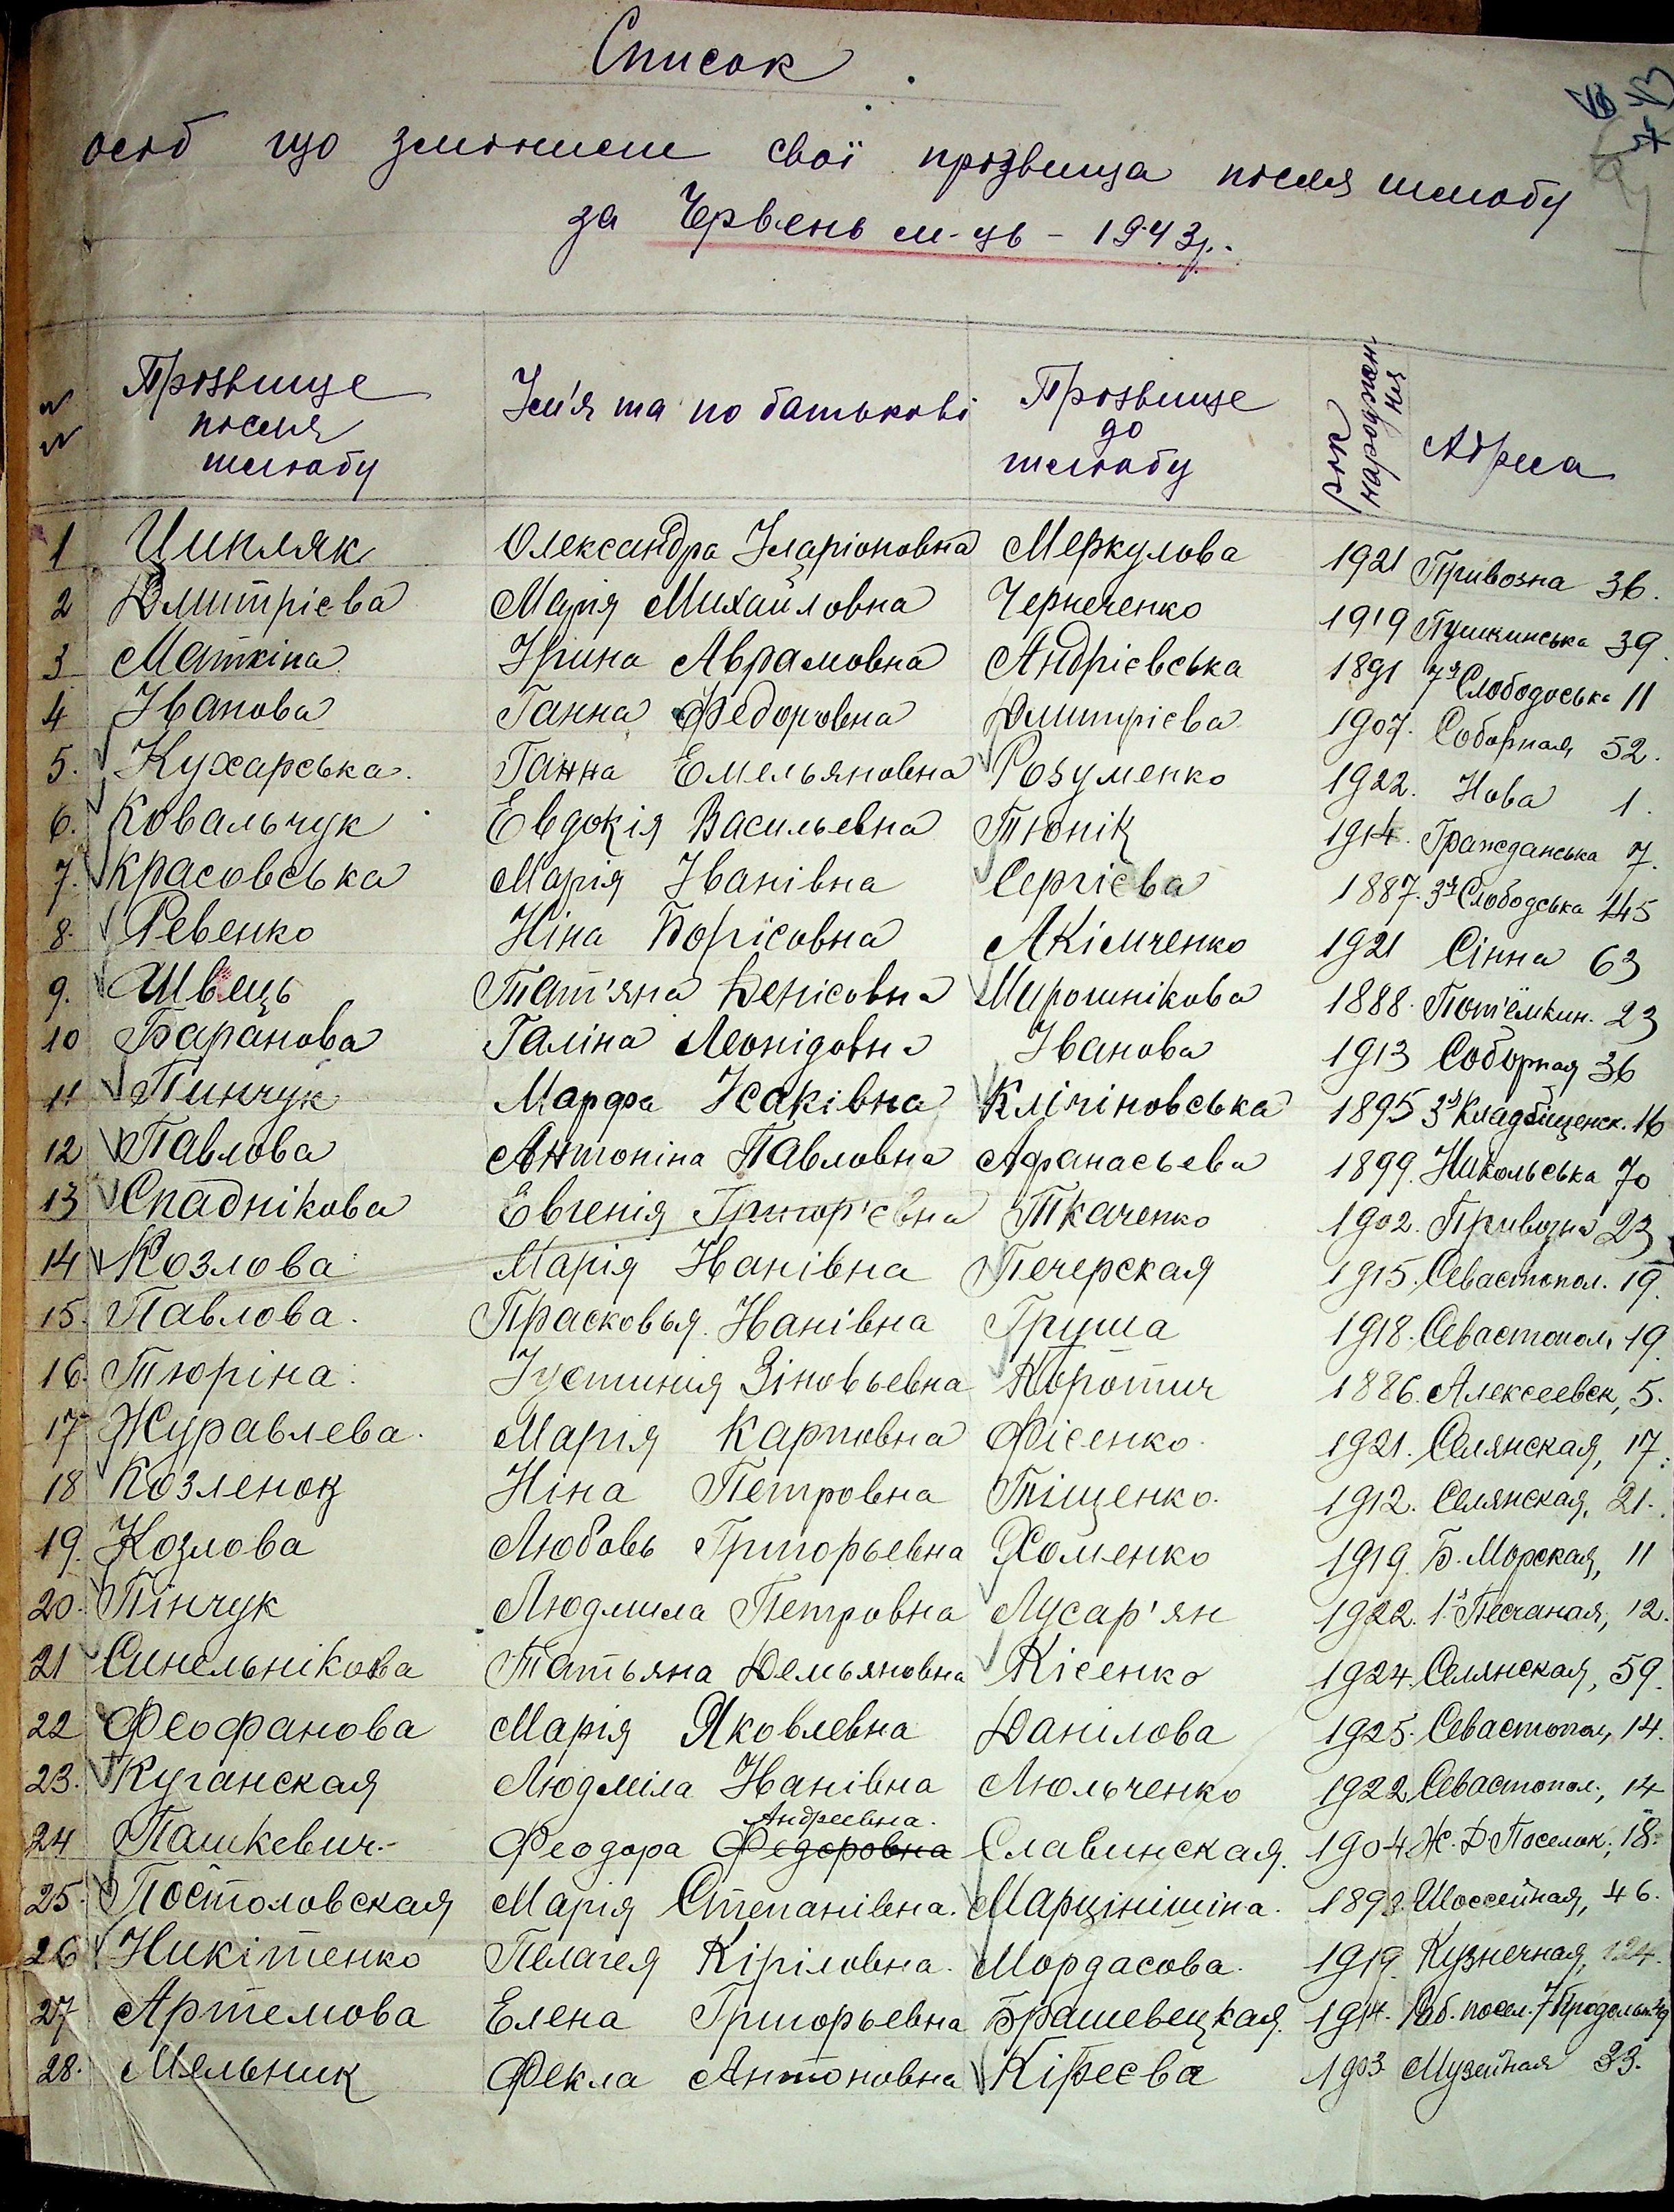 Список
осіб що змінили свої прізвища після шлюбу
за Червень м-ць - 1943р.
Прізвище після шлюбу Ім'я та по батькові Прізвище до шлюбу рік народження Адреса
1 Ципляк Олександра Іларіоновна Меркулова 1921 Привозна 36.
2 Дмитрієва Марія Михайловна Чернеченко 1919 Пушкинська 39.
3 Маткіна Ірина Аврамовна Андрієвська 1891 7а Слободська 11
4 Іванова Ганна Федоровна Дмитрієва 1907. Соборная 52.
5. Кухарська. Ганна Емельяновна Розуменко 1922. Нова 1.
6. Ковальчук Евдокія Васильевна Тюнік 1914. Гражданська 7.
7. Красовська Марія Іванівна Сергієва 1887. 3я Слободська 145
8. Ревенко Ніна Борісовна Акімченко 1921 Сінна 63
9. Швець Тат'яна Денісовна Мирошнікова 1888. Потёмкин. 23
10 Баранова Галіна Леонідовна Іванова 1913 Соборная 36
11 Пинчук Марфа Ісаківна Клічіновська 1895 3я Кладбіщенск. 16
12 Павлова Антоніна Павловна Афанасьева 1899. Никольська 70
13 Спаднікова Евгенія Григор'євна Ткаченко 1902. Привозна 23
14 Козлова Марія Іванівна Печерская 1915. Севастопол. 19.
15. Павлова. Прасковья Іванівна Груша 1918. Севастопол. 19.
16. Тюріна. Іустиния Зіновьевна Коротич 1886. Алексеевск, 5.
17 Журавлева. Марія Карповна Фісенко. 1921. Селянская, 17.
18 Козленок Ніна Петровна Тіщенко. 1912. Селянская, 21.
19. Козлова Любовь Григорьевна Хоменко 1919. Б. Морская, 11
20. Пінчук Людмила Петровна Лусар'ян 1922. 1я Песчаная, 12.
21 Синельнікова Татьяна Демьяновна Кісенко 1924. Селянская, 59.
22 Феофанова Марія Яковлевна Данілова 1925. Севастопол, 14.
23. Куганская Людміла Іванівна Люльченко 1922 Севастопол., 14
Андреевна.
24 Пашкевич.- Феодора Федоровна Славинская. 1904 Ж. Д Поселок, 18.
25. Постоловская Марія Степанівна. Марцінішіна. Шоссейная, 46.
26 Никітенко Пелагея Кіріловна. Мордасова. 1919. Кузнечная, 124.
27 Артемова Елена Григорьевна Брашевецкая. 1914. Раб. посел. 7 Продольн.
28. Мельник Фекла Антоновна Кірєєва 1903 Музейная 33.